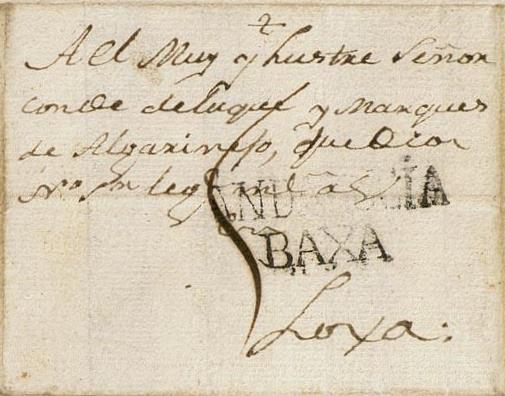 Al Muy Yllustre Señor
Conde de Luque y Marques
de Algarinejo, que Dios
Nro Sr
ANDALUCIA
BAXA
Loxa.